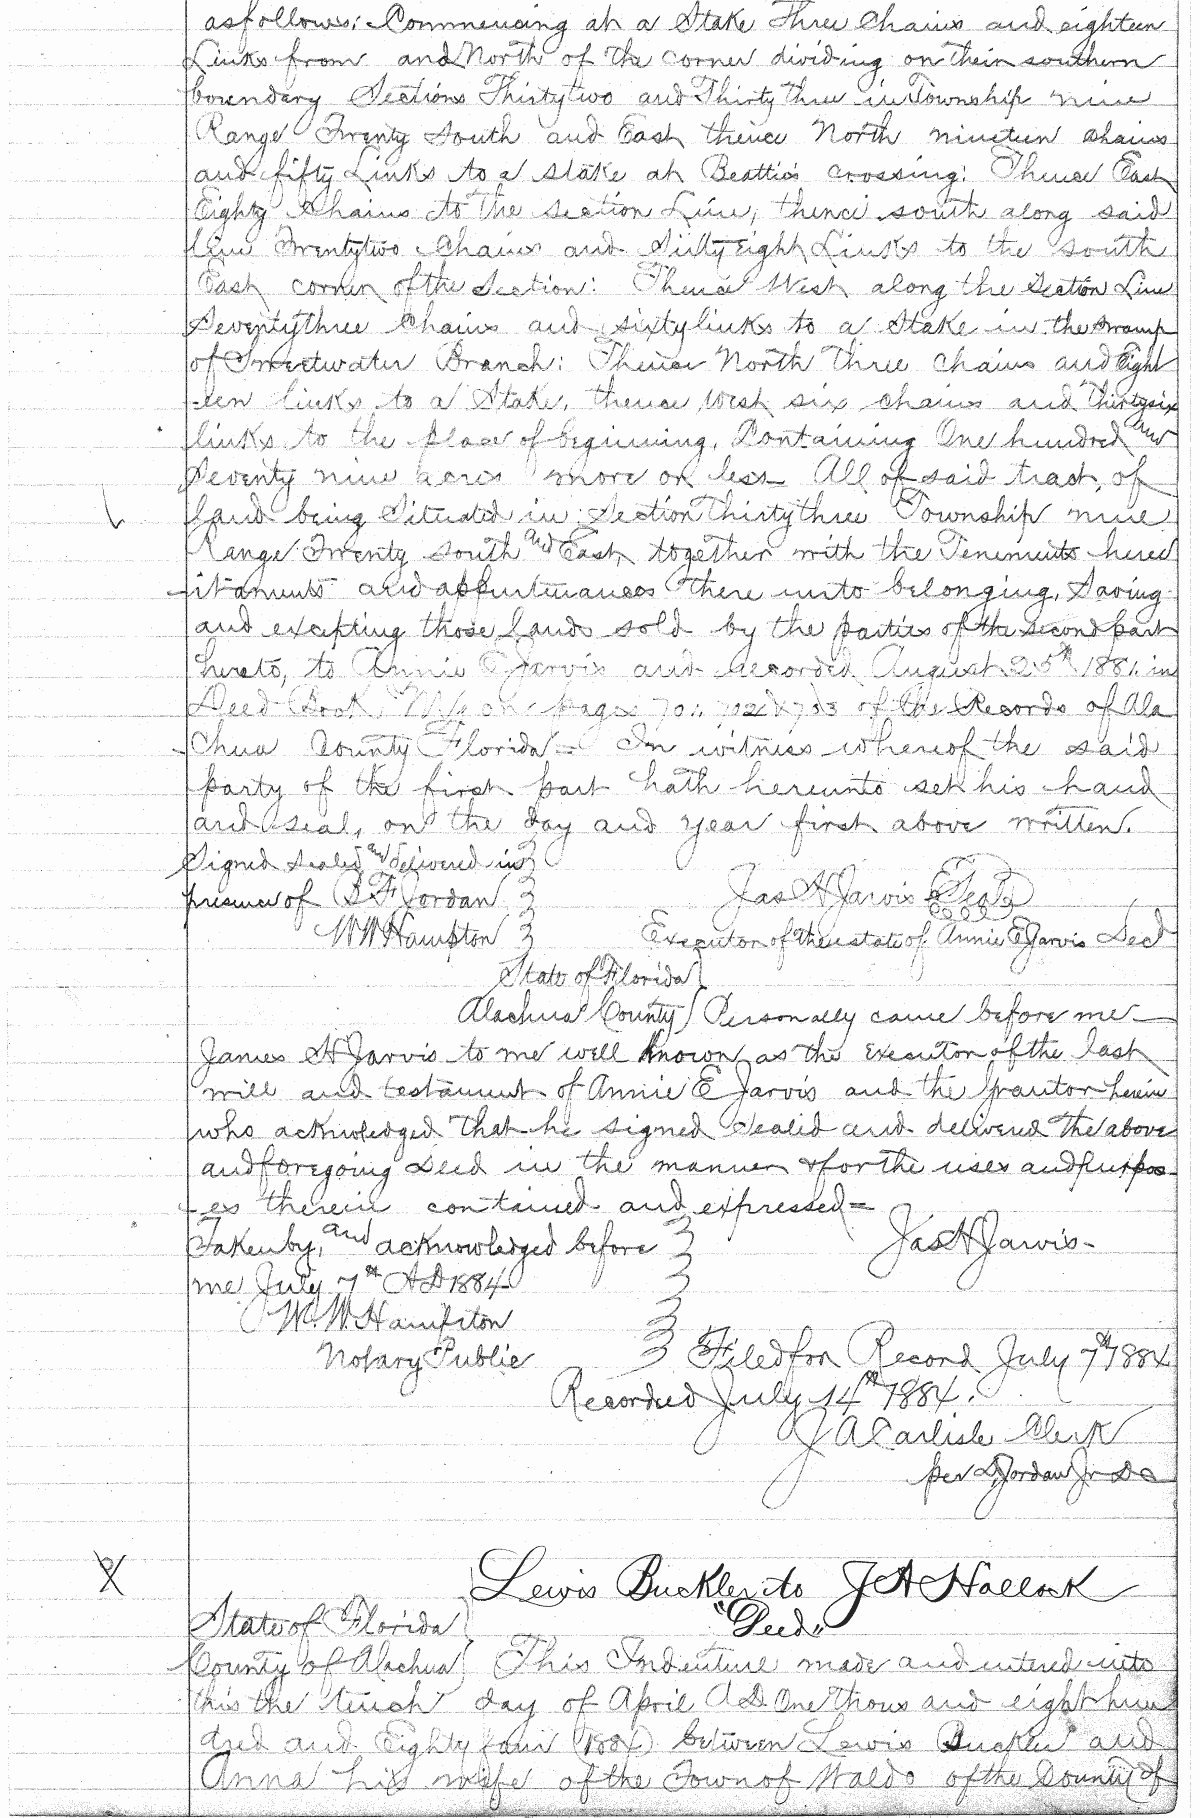 as follows: Commencing at a Stake Three Chains and eighteen
Links from and North of the corner dividing on their southern
boundary Sections Thirtytwo and Thirty three in Township nine
Range Twenty South and East thence North nineteen chains
and fifty Links to a stake at Beattie's crossing: Thence East
Eighty chains to the section Line, thence south along said
line Twentytwo Chains and Sixtyeight Links to the south
East corner of the Section: Thence West along the Section Line
Seventythree Chains and sixty links to a Stake in the swamp
of Sweetwater Branch: Thence North Three chains and Eight
-een links to a Stake, thence West six chains and thirtysix
links to the place of beginning, Containing One hundred and
Seventy nine acres more or less All of said tract, of
land being Situated in Section Thirty three Township nine
Range Twenty south and East, together with the Tenements hered
-itaments and appurtenances there unto belonging, Saving
and excepting those lands sold by the parties of the second part
hereto, to Annie E Jarvis and recorded August 25th 1881. in
Deed Book on pages 701. 702 & 703 of the Records of Ala
-chua County Florida= In witness whereof the said
party of the first part hath hereunto set his hand
and seal, on the day and year first above written.
Signed sealed and delivered in
presence of B F Jordan Jas H Jarvis Seal
W W Hampton Executor of the estate of Annie E Jarvis Decd
State of Florida
Alachua County Personally came before me
James H Jarvis to me well known as the Executor of the last
will and testament of Annie E Jarvis and the Grantor herein
who acknowledged That he signed sealed and delivered The above
and foregoing Deed in the manner & for the uses and purpos
-es therein contained and expressed=
Taken by, and acknowledged before Jas H Jarvis-
me July 7th AD 1884
W. W. Hampton
Notary Public Filed for Record July 7th 1884
Recorded July 14th 1884.
J A Carlisle Clerk
per Jordan Jr DC
X Lewis Buckler to J A Hallock
"Deed"
State of Florida
County of Alachua This Indenture made and entered into
this the tenth day of April A.D. One Thous and eight hun
dred and Eighty four (1884) between Lewis Buckler and
Anna his wife of the Town of Waldo of the County of